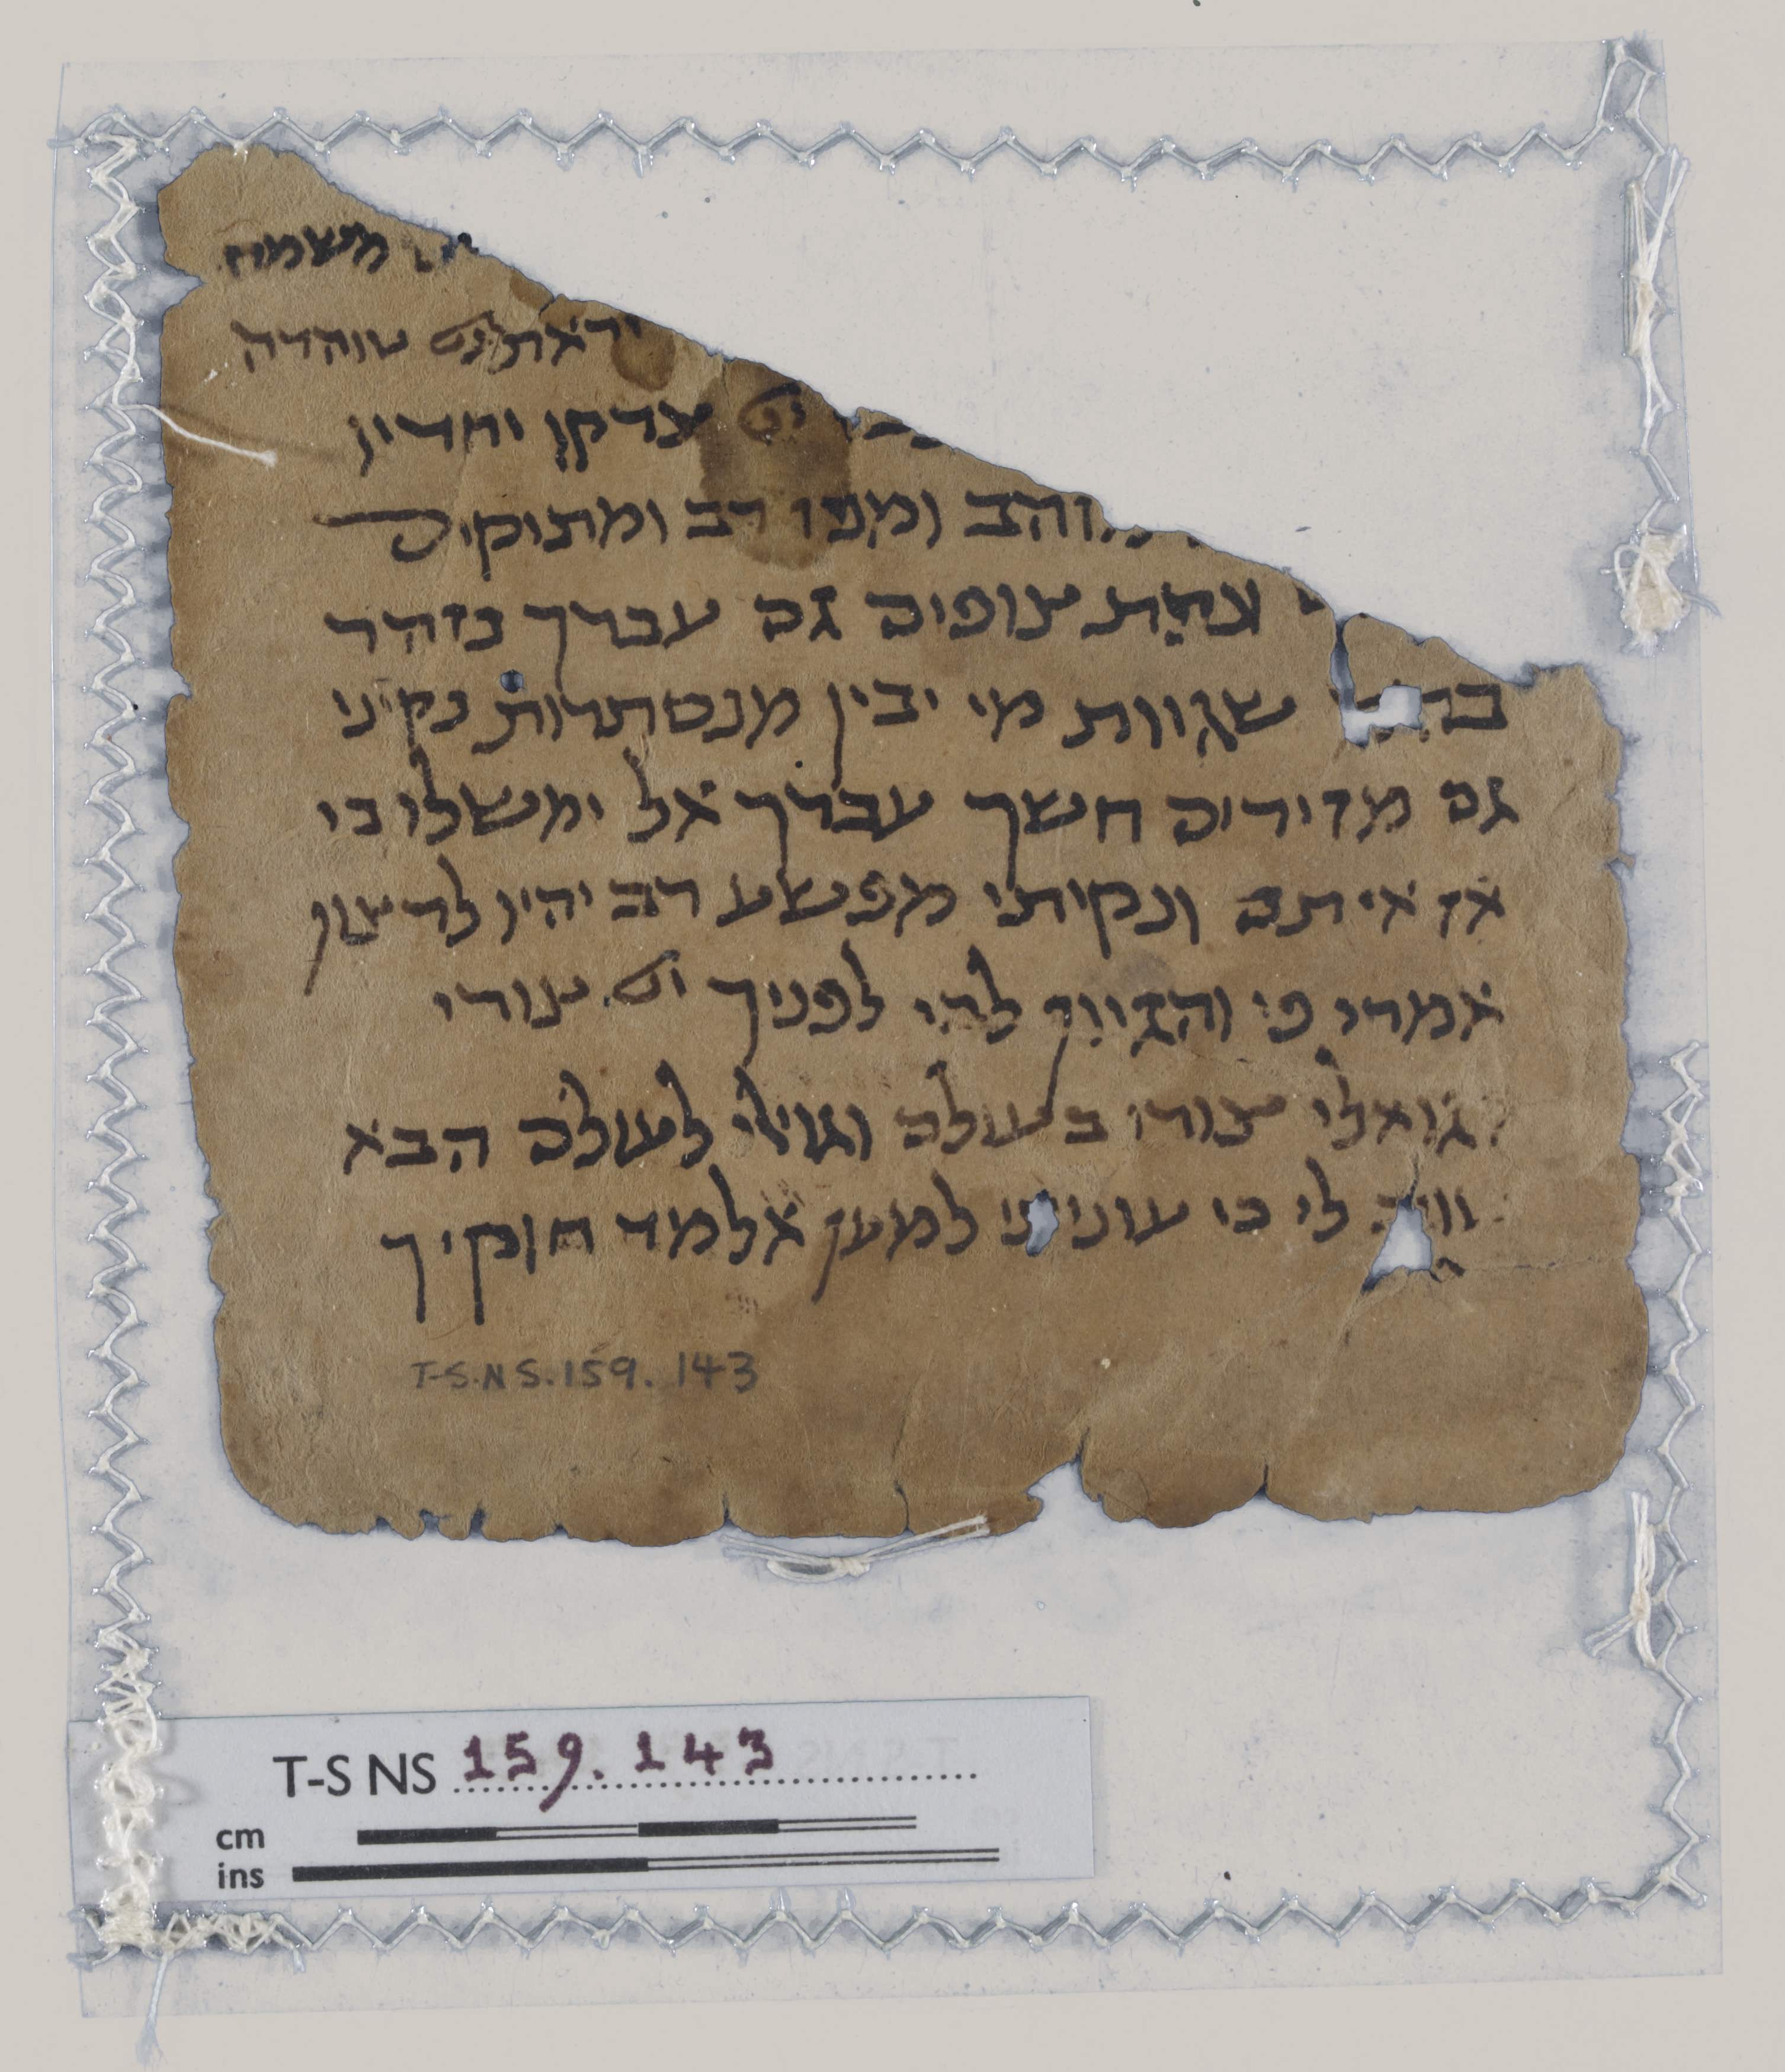 משמח
יראת ייי טוהרה
ייי צדקן יחדיו
מזהב ומפז רב ומתוקים
ונפת צופים גם עבדך נזהר
שגוות מי יבין מנסתרות נקיני
גם מזידים חשך עבדך אל ימשלו בי
אז איתם ונקיתי מפשע רב יהיו לרצון
אמרי פי והגיון לבי לפניך ייי צורי
וגואלי צורי בעולם וגואלי לעולם הבא
לי כי עוניתי למען אלמד חוקיך
T-S.NS.159.143
T-S NS 159.143
cm
ins